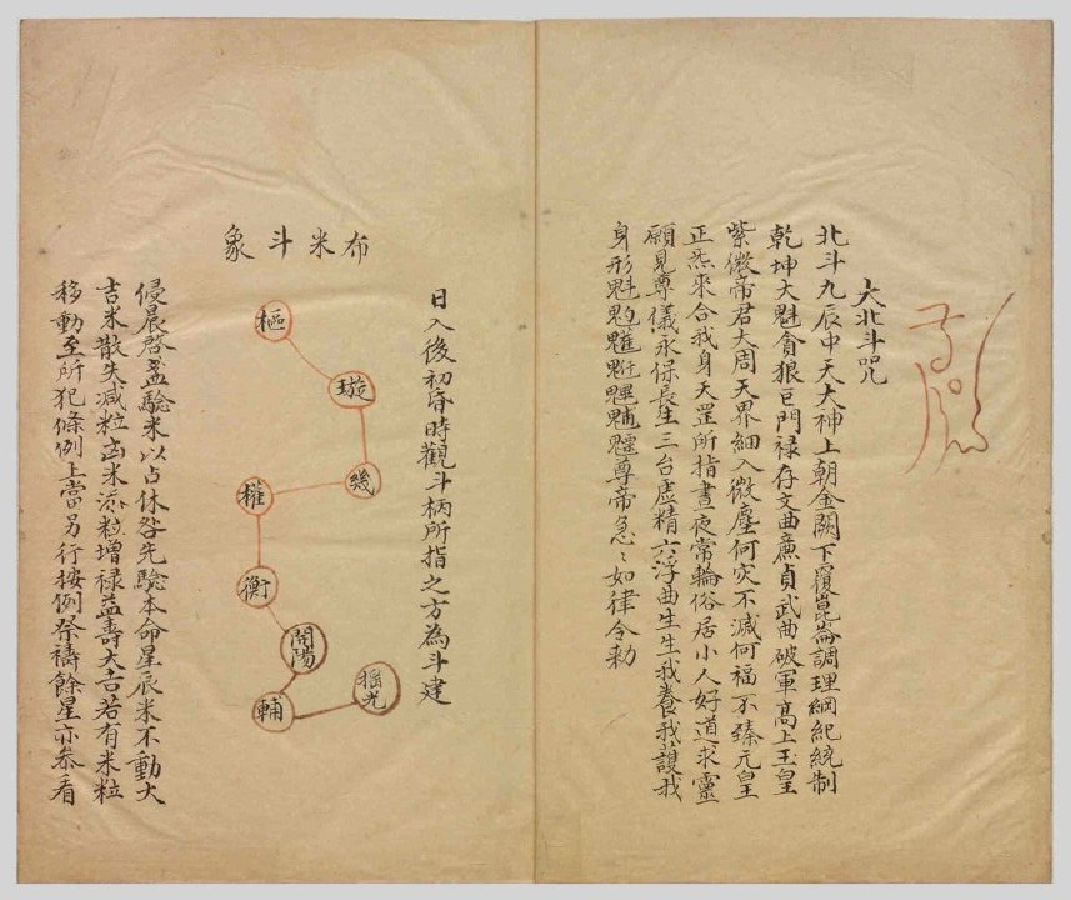 大北斗咒
北斗九辰中天大神上朝金闕下覆崑崙調理綱紀統制
乾坤大魁貪狼巨門禄存文曲廉貞武曲破軍高上玉皇
紫微帝君大周天界細入微塵何灾不滅何福不臻元皇
正炁來合我身天罡所指晝夜常輪俗居小人好道求靈
願見尊儀永保長生三台虚精六淳曲生生我養我護我
身形魁𩲃䰢魓䰨魒魖尊帝急〻如律令勅
日入後初昏時觀斗柄所指之方為斗建
布米斗象
樞
璇
幾
權
衡
開陽
輔
摇光
侵晨啓盖驗米以占休咎先驗本命星辰米不動大
吉米散失减粒凶米添粒增禄益壽大吉若有米粒
移動至所犯條例上當另行按例祭禱餘星亦叅看